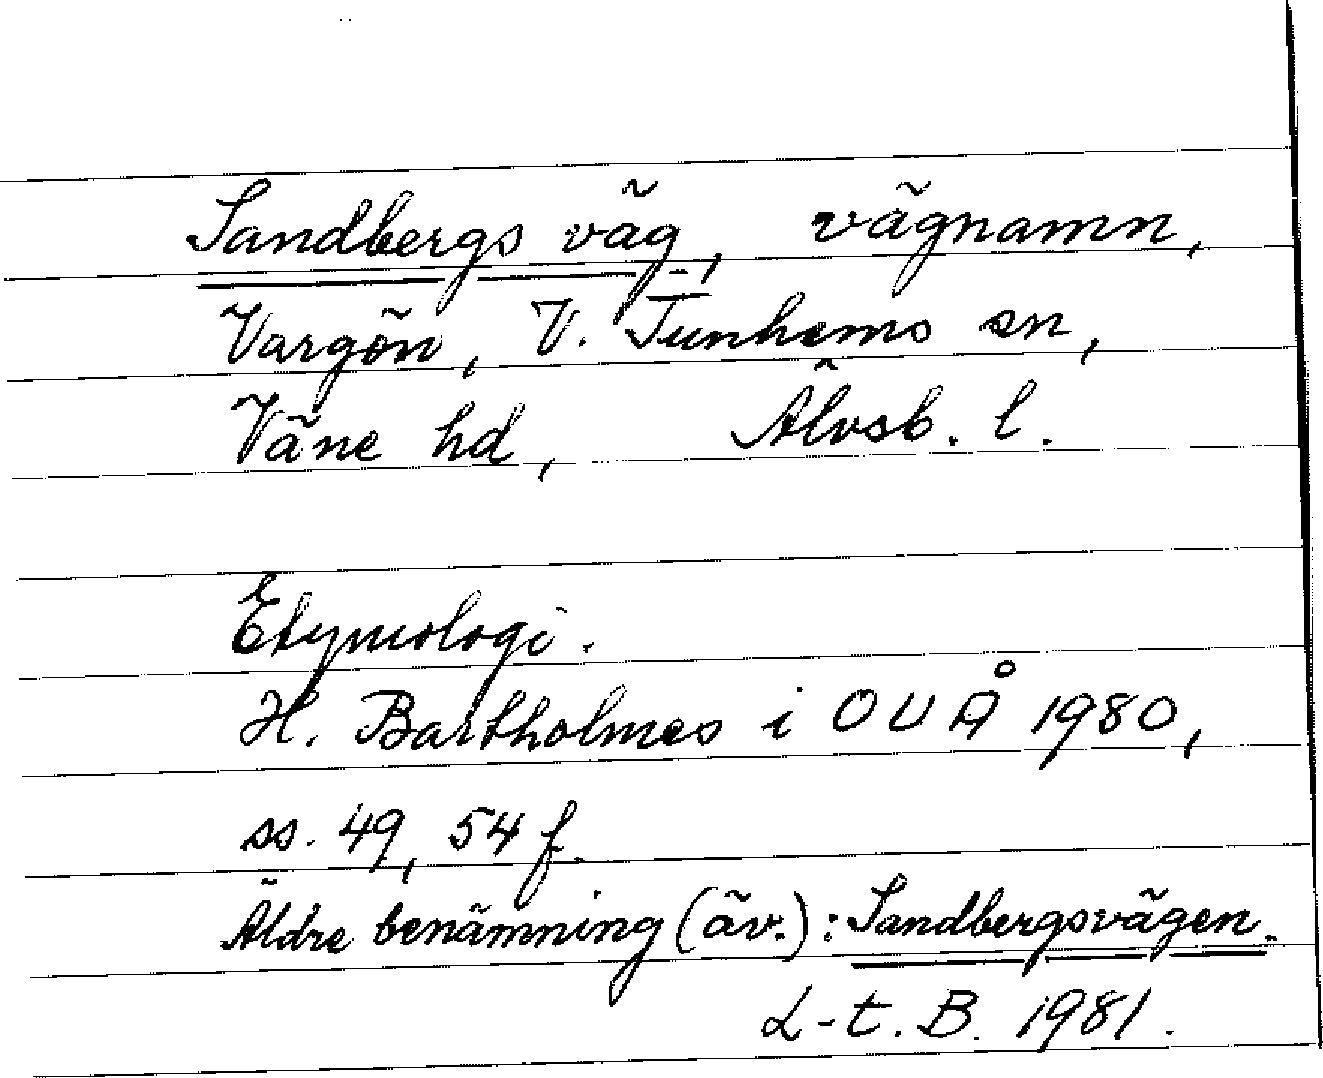 Sandbergs väg, vägnamn,
Vargön, V. Tunhems sn,
Väne hd, Älvsb. l.
Etymologi.
H. Bartholmes i OUÅ 1980,
ss. 49, 54 f.
Äldre benämning (äv.): Sandbergsvägen.
L-t. B. 1981.